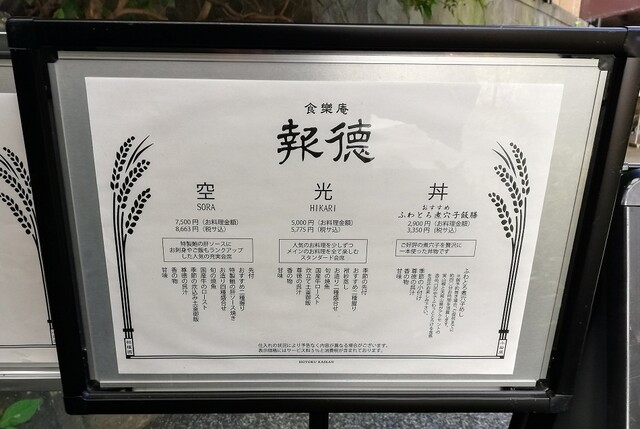 食樂庵
報徳
空
SORA
7,500円（お料理金額）
8,663円（税サ込）
特製鮑の肝ソースに
お刺身やご飯もランクアップ
した人気の充実会席
先付
おすすめ二種握り
特製鮑の肝ソース焼き
お造り四種盛合せ
旬の焼魚
国産牛のロースト
季節の炊込み土釜御飯
尊徳の呉汁
香の物
甘味
光
HIKARI
5,000円（お料理金額）
5,775円（税サ込）
人気のお料理を少しずつ
メインのお料理を全て楽しむ
スタンダード会席
季節の先付
おすすめ二種握り
椒紗蒸し
お造り二種盛合せ
旬の焼魚
国産牛ロースト
炊立て土釜御飯
尊徳の呉汁
香の物
甘味
丼
おすすめ
ふわとろ煮穴子飯膳
2,900円（お料理金額）
3,350円（税サ込）
ご好評の煮穴子を贅沢に
一本使った丼物です
ふわとろ煮穴子めし
季節の小付け
尊徳の呉汁
香の物
甘味
仕入れの状況により予告なく内容が異なる場合がございます。
表示価格にはサービス料5%と消費税が含まれております。
HOTOKU KAIKAN